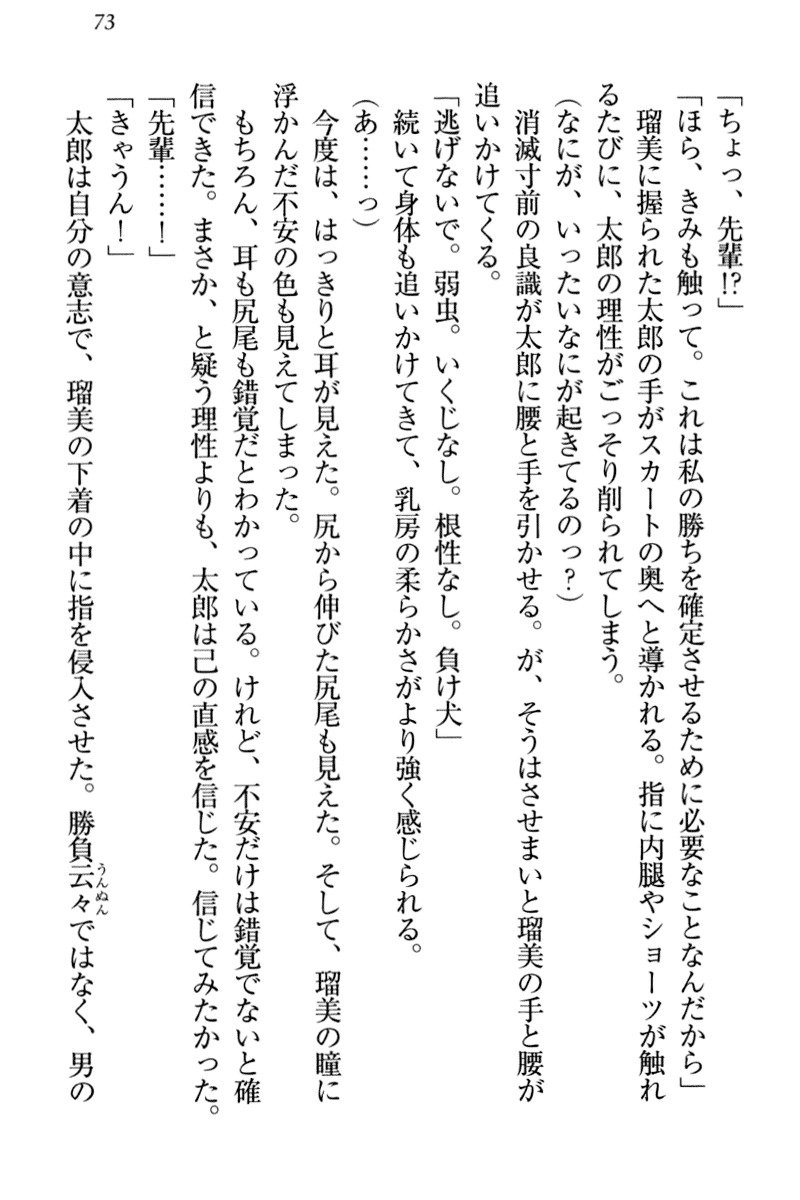 73
「ちょっ、先輩!?」
「ほら、きみも触って。これは私の勝ちを確定させるために必要なことなんだから」
瑠美に握られた太郎の手がスカートの奥へと導かれる。指に内腿やショーツが触れ
るたびに、太郎の理性がごっそり削られてしまう。
(なにが、いったいなにが起きてるのっ?)
消滅寸前の良識が太郎に腰と手を引かせる。が、そうはさせまいと瑠美の手と腰が
追いかけてくる。
「逃げないで。弱虫。いくじなし。根性なし。負け犬」
続いて身体も追いかけてきて、乳房の柔らかさがより強く感じられる。
(あ……っ)
今度は、はっきりと耳が見えた。尻から伸びた尻尾も見えた。そして、瑠美の瞳に
浮かんだ不安の色も見えてしまった。
もちろん、耳も尻尾も錯覚だとわかっている。けれど、不安だけは錯覚でないと確
信できた。まさか、と疑う理性よりも、太郎は己の直感を信じた。信じてみたかった。
「先輩……!」
「きゃうん!」
太郎は自分の意志で、瑠美の下着の中に指を侵入させた。勝負云々うんぬんではなく、男の